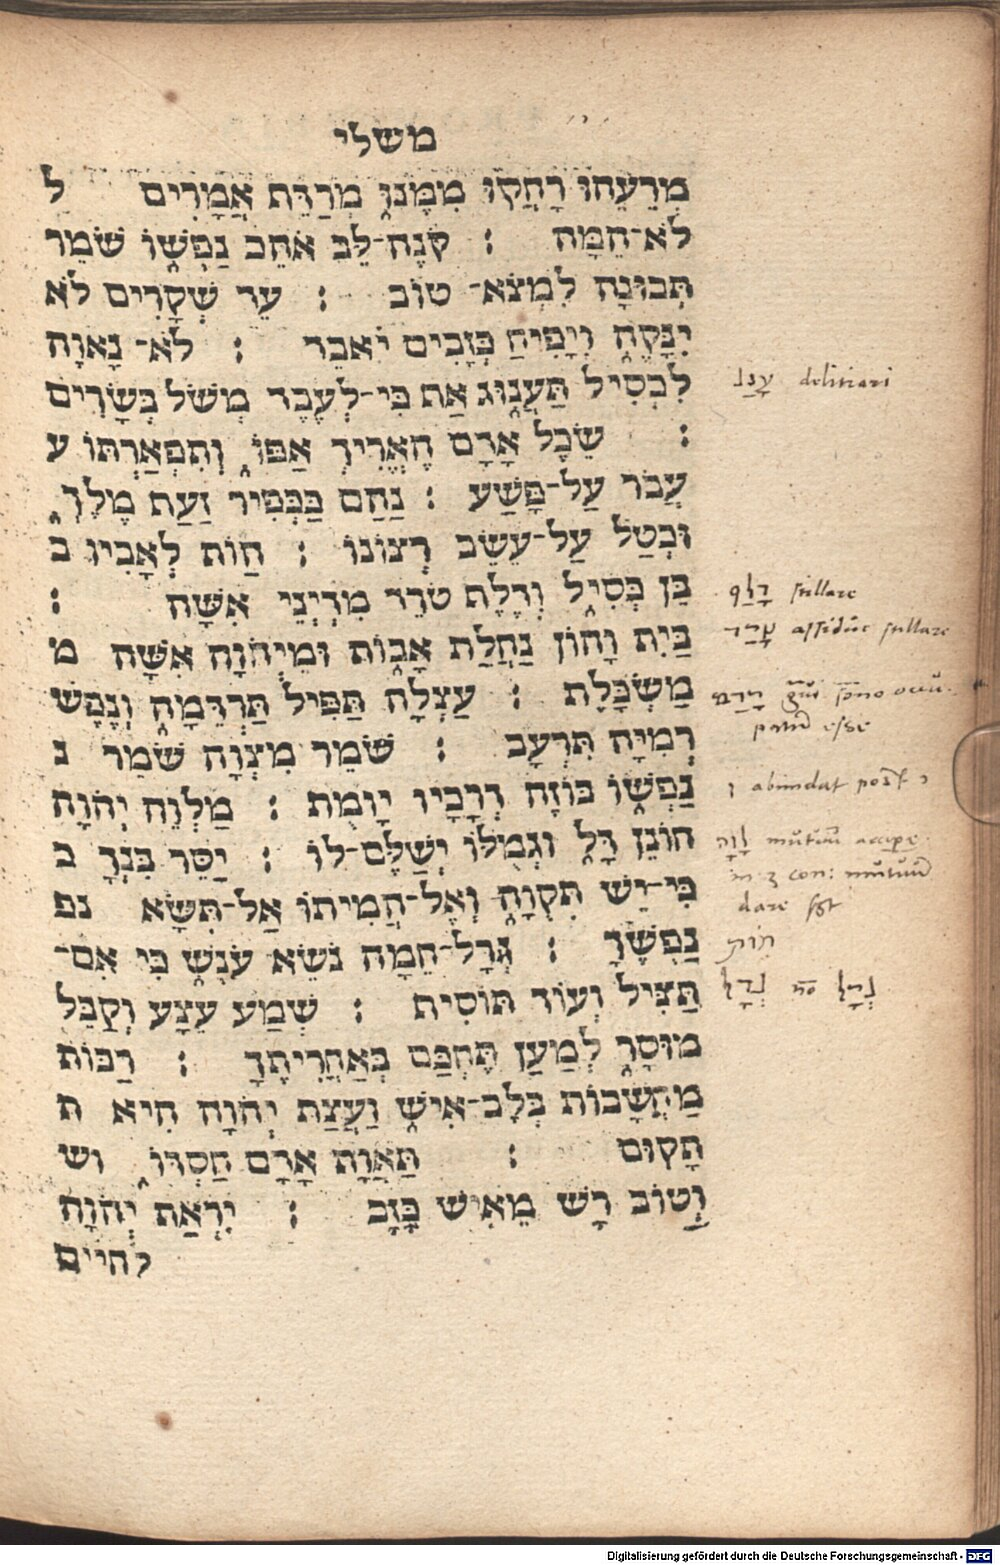 משלי
מְרֵעֵהוּ רָחֲקוּ מִמֶּנּוּ מְרַדֵּף אֲמָרִים ל
לֹא־הֵמָּה : קֹנֶה־לֵּב אֹהֵב נַפְשׁוֹ שֹׁמֵר
תְּבוּנָה לִמְצֹא־ טוֹב : עֵד שְׁקָרִים לֹא
יִנָּקֶה וְיָפִיחַ כְּזָבִים יֹאבֵד : לֹא־ נָאוֶה
לִכְסִיל תַּעֲנוּג אַף כִּי־לְעֶבֶד מְשֹׁל בְּשָׂרִים
: שֵׂכֶל אָדָם הֶאֱרִיךְ אַפּוֹ וְתִפְאַרְתּוֹ ע
עֲבֹר עַל־פָּשַׁע : נַהַם כַּכְּפִיר זַעַף מֶלֶךְ
וּכְטַל עַל־עֵשֶׂב רְצוֹנוֹ : הַוֹּת לְאָבִיו ב
בֵּן כְּסִיל וְדֶלֶף טֹרֵד מִדְיְנֵי אִשָּׁה :
בַּיִת וָהוֹן נַחֲלַת אָבוֹת וּמֵיְהוָה אִשָּׁה מ
מַשְׂכָּלֶת : עַצְלָה תַּפִּיל תַּרְדֵּמָה וְנֶפֶשׁ
רְמִיָּה תִּרְעָב : שֹׁמֵר מִצְוָה שֹׁמֵר נ
נַפְשׁוֹ בּוֹזֵה דְרָכָיו יָוְמֻת : מַלְוֵה יְהוָה
חוֹנֵן דָּל וּגְמֻלוֹ יְשַׁלֶּם־לוֹ : יַסֵּר בִּנְךָ כ
כִּי־יֵשׁ תִּקְוָה וְאֶל־הֲמִיתוֹ אַל־תִּשָּׂא נפ
נַפְשֶׁךָ : גְּרָל־חֵמָה נֹשֵׂא עֹנֶשׁ כִּי אִם־
תַּצִּיל וְעוֹד תּוֹסִיף : שְׁמַע עֵצָה וְקַבֵּל
מוּסָר לְמַעַן תֶּחְכַּם בְּאַחֲרִיתֶךָ : רַבּוֹת
מַחֲשָׁבוֹת בְּלֶב־אִישׁ וַעֲצַת יְהוָה הִיא ת
תָקוּם : תַּאֲוַת אָדָם חַסְדּוֹ וט
וְטוֹב רָשׁ מֵאִישׁ כָּזָב : יִרְאַת יְהוָה
לחיים
עָנַג delitiari
דָלַף stillare
טָרַד assidue stillare
רָדַם
esse
ו abundat post ו
לָוָה mutuum accipe
in 3 con: mutuum
dare
הוֹת
גְרָל גְדָל
Digitalisierung gefördert durch die Deutsche Forschungsgemeinschaft - DFG